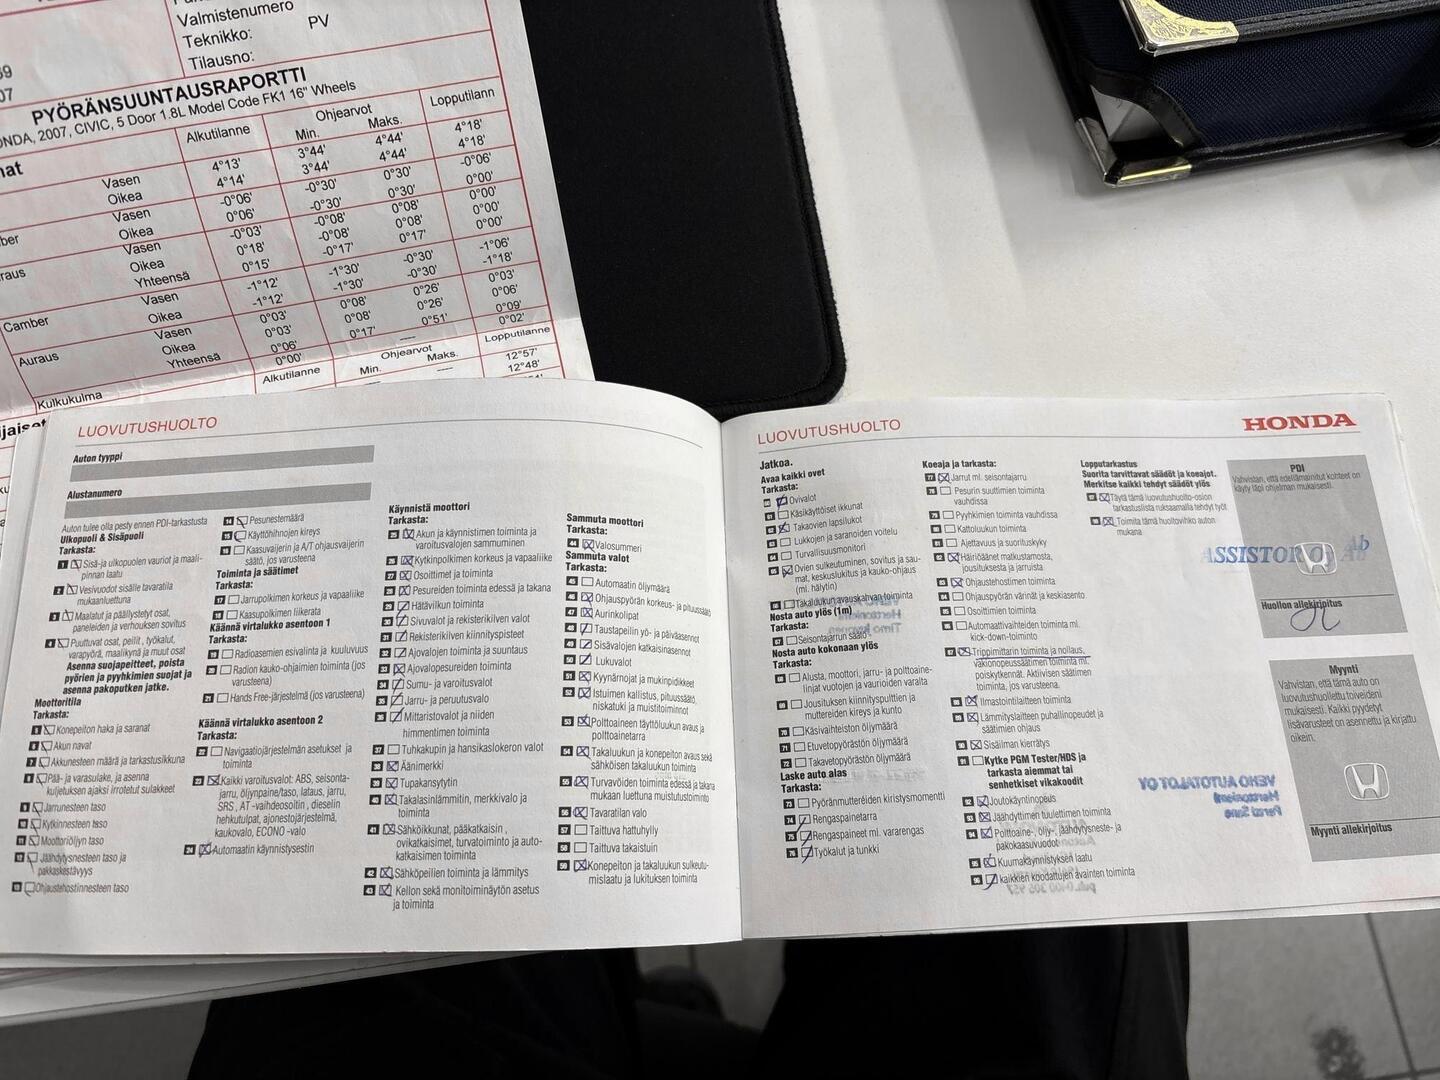 Valmistenumero
Teknikko: PV
Tilausno:
PYÖRÄNSUUNTAUSRAPORTTI
HONDA, 2007, CIVIC, 5 Door 1.8L Model Code FK1 16" Wheels
Alkutilanne Ohjearvot Lopputilann
Min. Maks.
Vasen 4°13' 3°44' 4°44' 4°18'
Oikea 4°14' 3°44' 4°44' 4°18'
Vasen -0°06' -0°30' 0°30' -0°06'
Oikea 0°06' -0°30' 0°30' 0°00'
Vasen -0°03' -0°08' 0°08' 0°00'
Oikea 0°18' -0°08' 0°08' 0°00'
Yhteensä 0°15' -0°17' 0°17' 0°00'
Camber Vasen -1°12' -1°30' -0°30' -1°06'
Oikea -1°12' -1°30' -0°30' -1°18'
Auraus Vasen 0°03' 0°08' 0°26' 0°03'
Oikea 0°03' 0°08' 0°26' 0°06'
Yhteensä 0°06' 0°17' 0°51' 0°09'
Kulkukulma 0°00' 0°02'
Alkutilanne Ohjearvot Lopputilanne
Min. Maks.
12°57'
12°48'
LUOVUTUSHUOLTO
Auton tyyppi
Alustanumero
Auton tulee olla pesty ennen PDI-tarkastusta
Ulkopuoli & Sisäpuoli
Tarkasta:
1 Sisä-ja ulkopuolen vauriot ja maali-
pinnan laatu
2 Vesivuodot sisidlle tavaratila
mukaanluettuna
3 Maalatut ja päällystetyt osat,
paneleiden ja verhouksen sovitus
4 Puuttuvat osat, peilit , työkalut,
varapyörä, maalikynä ja muut osat
Asenna suojapeitteet, poista
pyörien ja pyyhkimien suojat ja
asenna pakoputken jatke.
Moottoritila
Tarkasta:
5 Konepeiton haka ja saranat
6 Akun navat
7 Akkunesteen määrä ja tarkastusikkuna
8 Pää- ja varasulake, ja asenna
kuljetuksen ajaksi irrotetut sulakkeet
9 Jarrunesteen taso
10 Kytkinnesteen taso
11 Moottoriöljyn taso
12 Jäähdytysnesteen taso ja
pakkaskestävyys
13 Ohjaustehostinnesteen taso
14 Pesunestemäärä
15 Käyttöhihnojen kireys
16 Kaasuvaijerin ja A/T ohjausvaijerin
säätö, jos varusteena
Toiminta ja säätimet
Tarkasta:
17 Jarrupolkimen korkeus ja vapaaliike
18 Kaasupolkimen liikerata
Käännä virtalukko asentoon 1
Tarkasta:
19 Radioasemien esivalinta ja kuuluvuus
20 Radion kauko-ohjaimien toiminta (jos
varusteena)
21 Hands Free-järjestelmä (jos varusteena)
Käännä virtalukko asentoon 2
Tarkasta:
22 Navigaatiojärjestelmän asetukset ja
toiminta
23 Kaikki varoitusvalot: ABS, seisonta-
jarru, öljynpaine/taso, lataus, jarru,
SRS , AT -vaihdeosoitin, dieselin
hehkutulpat, ajonestojärjestelmä,
kaukovalo, ECONO -valo
24 Automaatin käynnistysestin
Käynnistä moottori
Tarkasta:
25 Akun ja käynnistimen toiminta ja
varoitusvalojen sammuminen
26 Kytkinpolkimen korkeus ja vapaaliike
27 Osoittimet ja toiminta
28 Pesureiden toiminta edessä ja takana
29 Hätävilkun toiminta
30 Sivuvalot ja rekisterikilven valot
31 Rekisterikilven kiinnityspisteet
32 Ajovalojen toiminta ja suuntaus
33 Ajovalopesureiden toiminta
34 Sumu- ja varoitusvalot
35 Jarru- ja peruutusvalo
36 Mittaristovalot ja niiden
himmentimen toiminta
37 Tuhkakupin ja hansikaslokeron valot
38 Äänimerkki
39 Tupakansytytin
40 Takalasinlämmitin, merkkivalo ja
toiminta
41 Sähköikkunat, pääkatkaisin ,
ovikatkaisimet, turvatoiminto ja auto-
katkaisimen toiminta
42 Sähköpeilien toiminta ja lämmitys
43 Kellon sekä monitoiminäytön asetus
ja toiminta
Sammuta moottori
44 Valosummeri
Sammuta valot
Tarkasta:
45 Automaatin öljymäärä
46 Ohjauspyörän korkeus- ja pituussäätö
47 Aurinkolipat
48 Taustapeilin yö- ja päiväasennot
49 Sisävalojen katkaisinasennot
50 Lukuvalot
51 Kyynärnojat ja mukinpidikkeet
52 Istuimen kallistus, pituussäätö,
niskatuki ja muistitoiminnot
53 Polttoaineen täyttöluukun avaus ja
polttoainetarra
54 Takaluukun ja konepeiton avaus sekä
sähköisen takaluukun toiminta
55 Turvavöiden toiminta edessä ja takana
mukaan luettuna muistutustoiminto
56 Tavaratilan valo
57 Taittuva hattuhylly
58 Taittuva takaistuin
59 Konepeiton ja takaluukun sulkeutu-
mislaatu ja lukituksen toiminta
LUOVUTUSHUOLTO
HONDA
Jatkoa.
Avaa kaikki ovet
Tarkasta:
60 Ovivalot
61 Käsikäyttöiset ikkunat
62 Takaovien lapsilukot
63 Lukkojen ja saranoiden voitelu
64 Turvallisuusmonitori
65 Ovien sulkeutuminen, sovitus ja sau-
mat, keskuslukitus ja kauko-ohjaus
(ml. hälytin)
66 Takaluukun avauskahvan toiminta
Nosta auto ylös (1m)
Tarkasta:
67 Seisontajarrun säätö
Nosta auto kokonaan ylös
Tarkasta:
68 Alusta, moottori, jarru- ja polttoaine-
linjat vuotojen ja vaurioiden varalta
69 Jousituksen kiinnityspulttien ja
muttereiden kireys ja kunto
70 Käsivaihteiston öljymäärä
71 Etuvetopyörästön öljymäärä
72 Takavetopyörästön öljymäärä
Laske auto alas
Tarkasta:
73 Pyöränmuttereiden kiristysmomentti
74 Rengaspainetarra
75 Rengaspaineet ml. vararengas
76 Työkalut ja tunkki
Koeaja ja tarkasta:
77 Jarrut ml. seisontajarru
78 Pesurin suuttimien toiminta
vauhdissa
79 Pyyhkimien toiminta vauhdissa
80 Kattoluukun toiminta
81 Ajettavuus ja suorituskyky
82 Häiriöäänet matkustamosta,
jousituksesta ja jarruista
83 Ohjaustehostimen toiminta
84 Ohjauspyörän värinät ja keskiasento
85 Osoittimien toiminta
86 Automaattivaihteiden toiminta ml.
kick-down-toiminto
87 Trippimittarin toiminta ja nollaus,
vakionopeussäätimen toiminta ml.
poiskytkennät. Aktiivisen säätimen
toiminta, jos varusteena.
88 Ilmastointilaitteen toiminta
89 Lämmityslaitteen puhallinopeudet ja
säätimien ohjaus
90 Sisäilman kierrätys
91 Kytke PGM Tester/HDS ja
tarkasta aiemmat tai
senhetkiset vikakoodit
92 Joutokäyntinopeus
93 Jäähdyttimen tuulettimen toiminta
94 Polttoaine-, öljy-, jäähdytysneste- ja
pakokaasuvuodot
95 Kuumakäynnistyksen laatu
96 kaikkien koodattujen avainten toiminta
Lopputarkastus
Suorita tarvittavat säädöt ja koeajot.
Merkitse kaikki tehdyt säädöt ylös
97 Täytä tämä luovutushuolto-osion
tarkastuslista ruksaamalla tehdyt työt
98 Toimita tämä huoltovihko auton
mukana
PDI
Vahvistan, että edellämainitut kohteet on
käyty läpi ohjelman mukaisesti.
ASSISTOR Oy Ab
Huollon allekirjoitus
Myynti
Vahvistan, että tämä auto on
luovutushuollettu toiveideni
mukaisesti. Kaikki pyydetyt
lisävarusteet on asennettu ja kirjattu
oikein.
Myynti allekirjoitus
VEHO AUTOTALOT OY
Herttoniemi